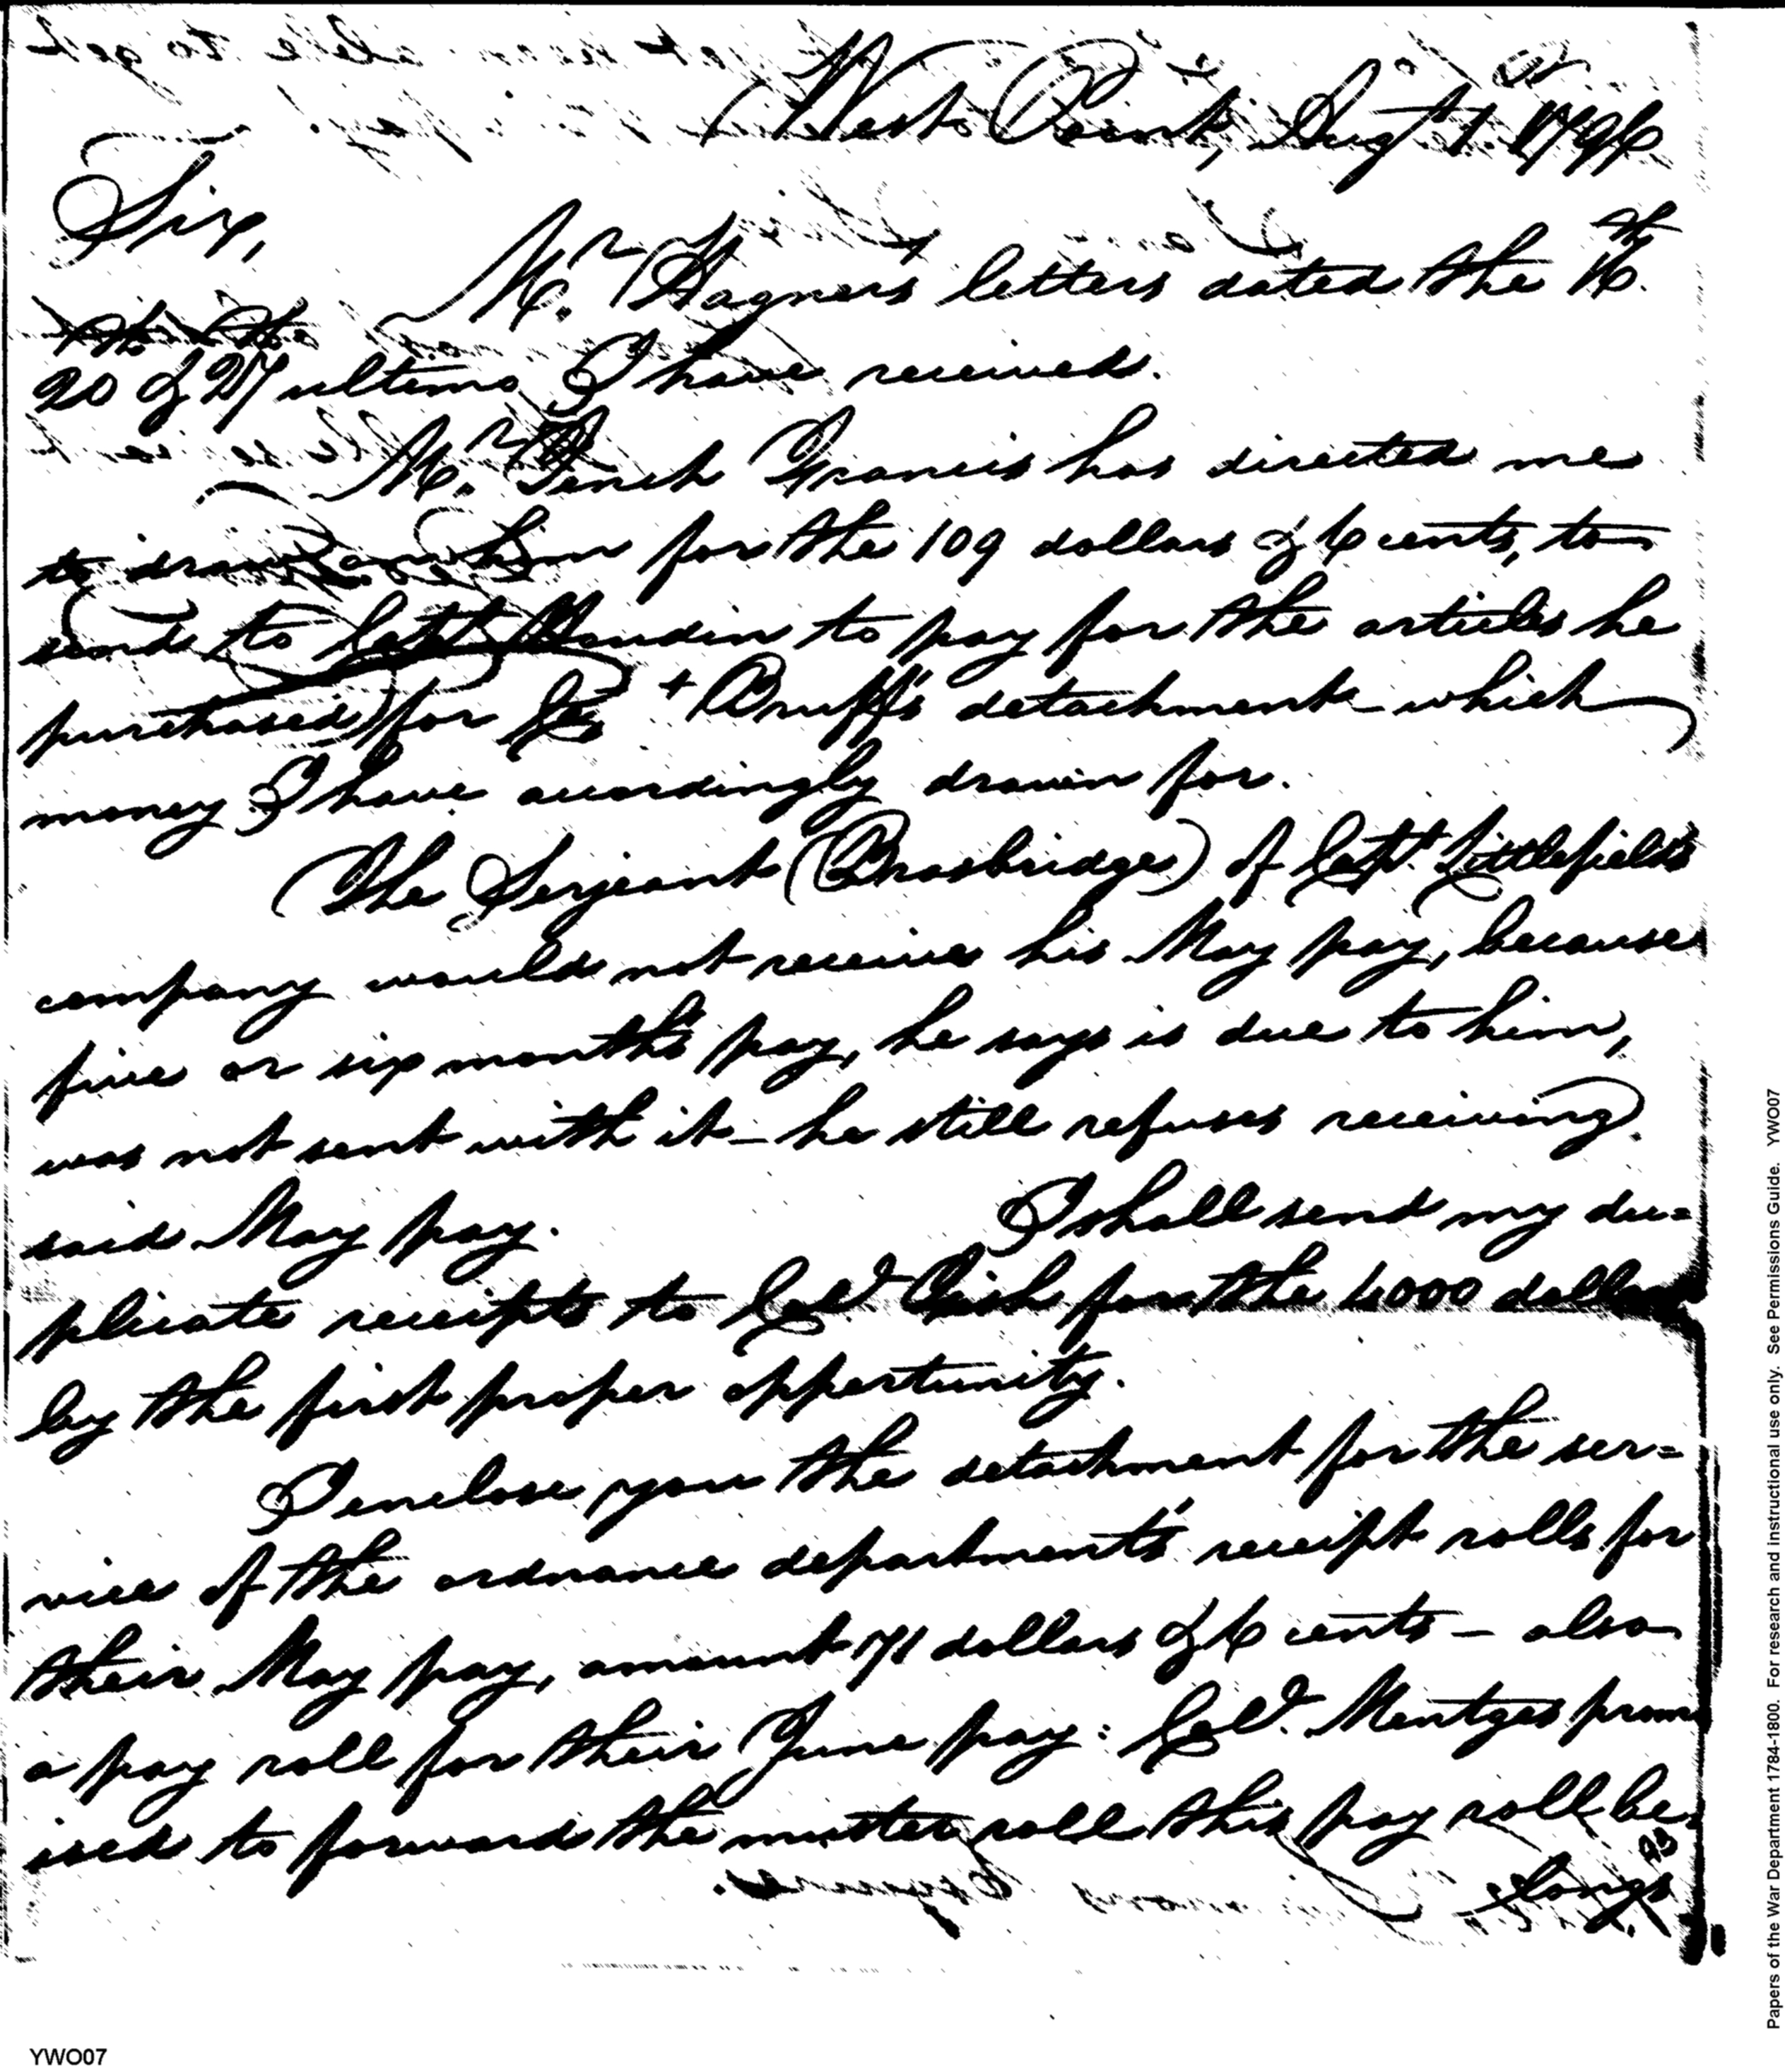 West Point, Augt. 1. 1796
Sir,
Mr. Hagners letters dated the 16th.
20th & 27th ultimo I have received.
Mr. Tench Francis has directed me
to draw on him for the 109 dollars & 6 cents, to
send to Capt. Houdin to pay for the articles he
purchased for Capt. Bruff's detachment - which
money I have accordingly drawn for.
The Serjeant (Brasbridge) of Capt. Littlefield's
company would not receive his May pay, because
five or six month's pay, he says is due to him,
was not sent with it - he still refuses receiving
said May pay. I shall send my du=
plicate receipts to Col. for the 4000 dollars
by the first proper opportunity.
I enclose you the detachment for the ser=
vice of the ordnance department's receipt rolls for
their May pay, amount 71 dollars & 6 cents - also
a pay roll for their June pay: Col. Mentges prom
ised to forward the muster roll this pay roll be=
longs
93
Papers of the War Department 1784-1800. For research and instructional use only. See Permissions Guide. YWO07
YWO07